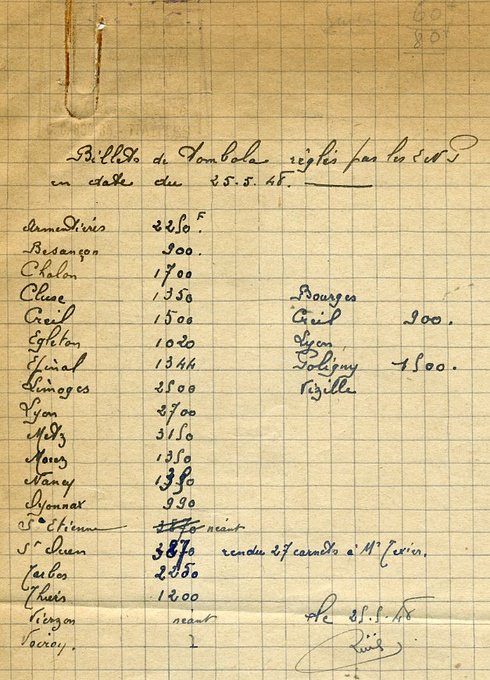 60
80
Billets de Tombola règlés par les ENP
en date du 25.5.48.
Armentières 2250F.
Besançon 900.
Chalon 1700
Cluse 1350
Creil 1500
Egleton 1020
Epinal 1344
Limoges 2500
Lyon 2700
Metz 3150
Morez 1350
Nancy 1350
Oyonnax 990
St Etienne 3870 néant
St Ouen 3870 rendu 27 carnets à Mr Texier.
Tarbes 2250
Thiers 1200
Vierzon néant
Voiron.
Bourges
Creil 900.
Lyon
Poligny 1500.
Vizille
le 25.5.48